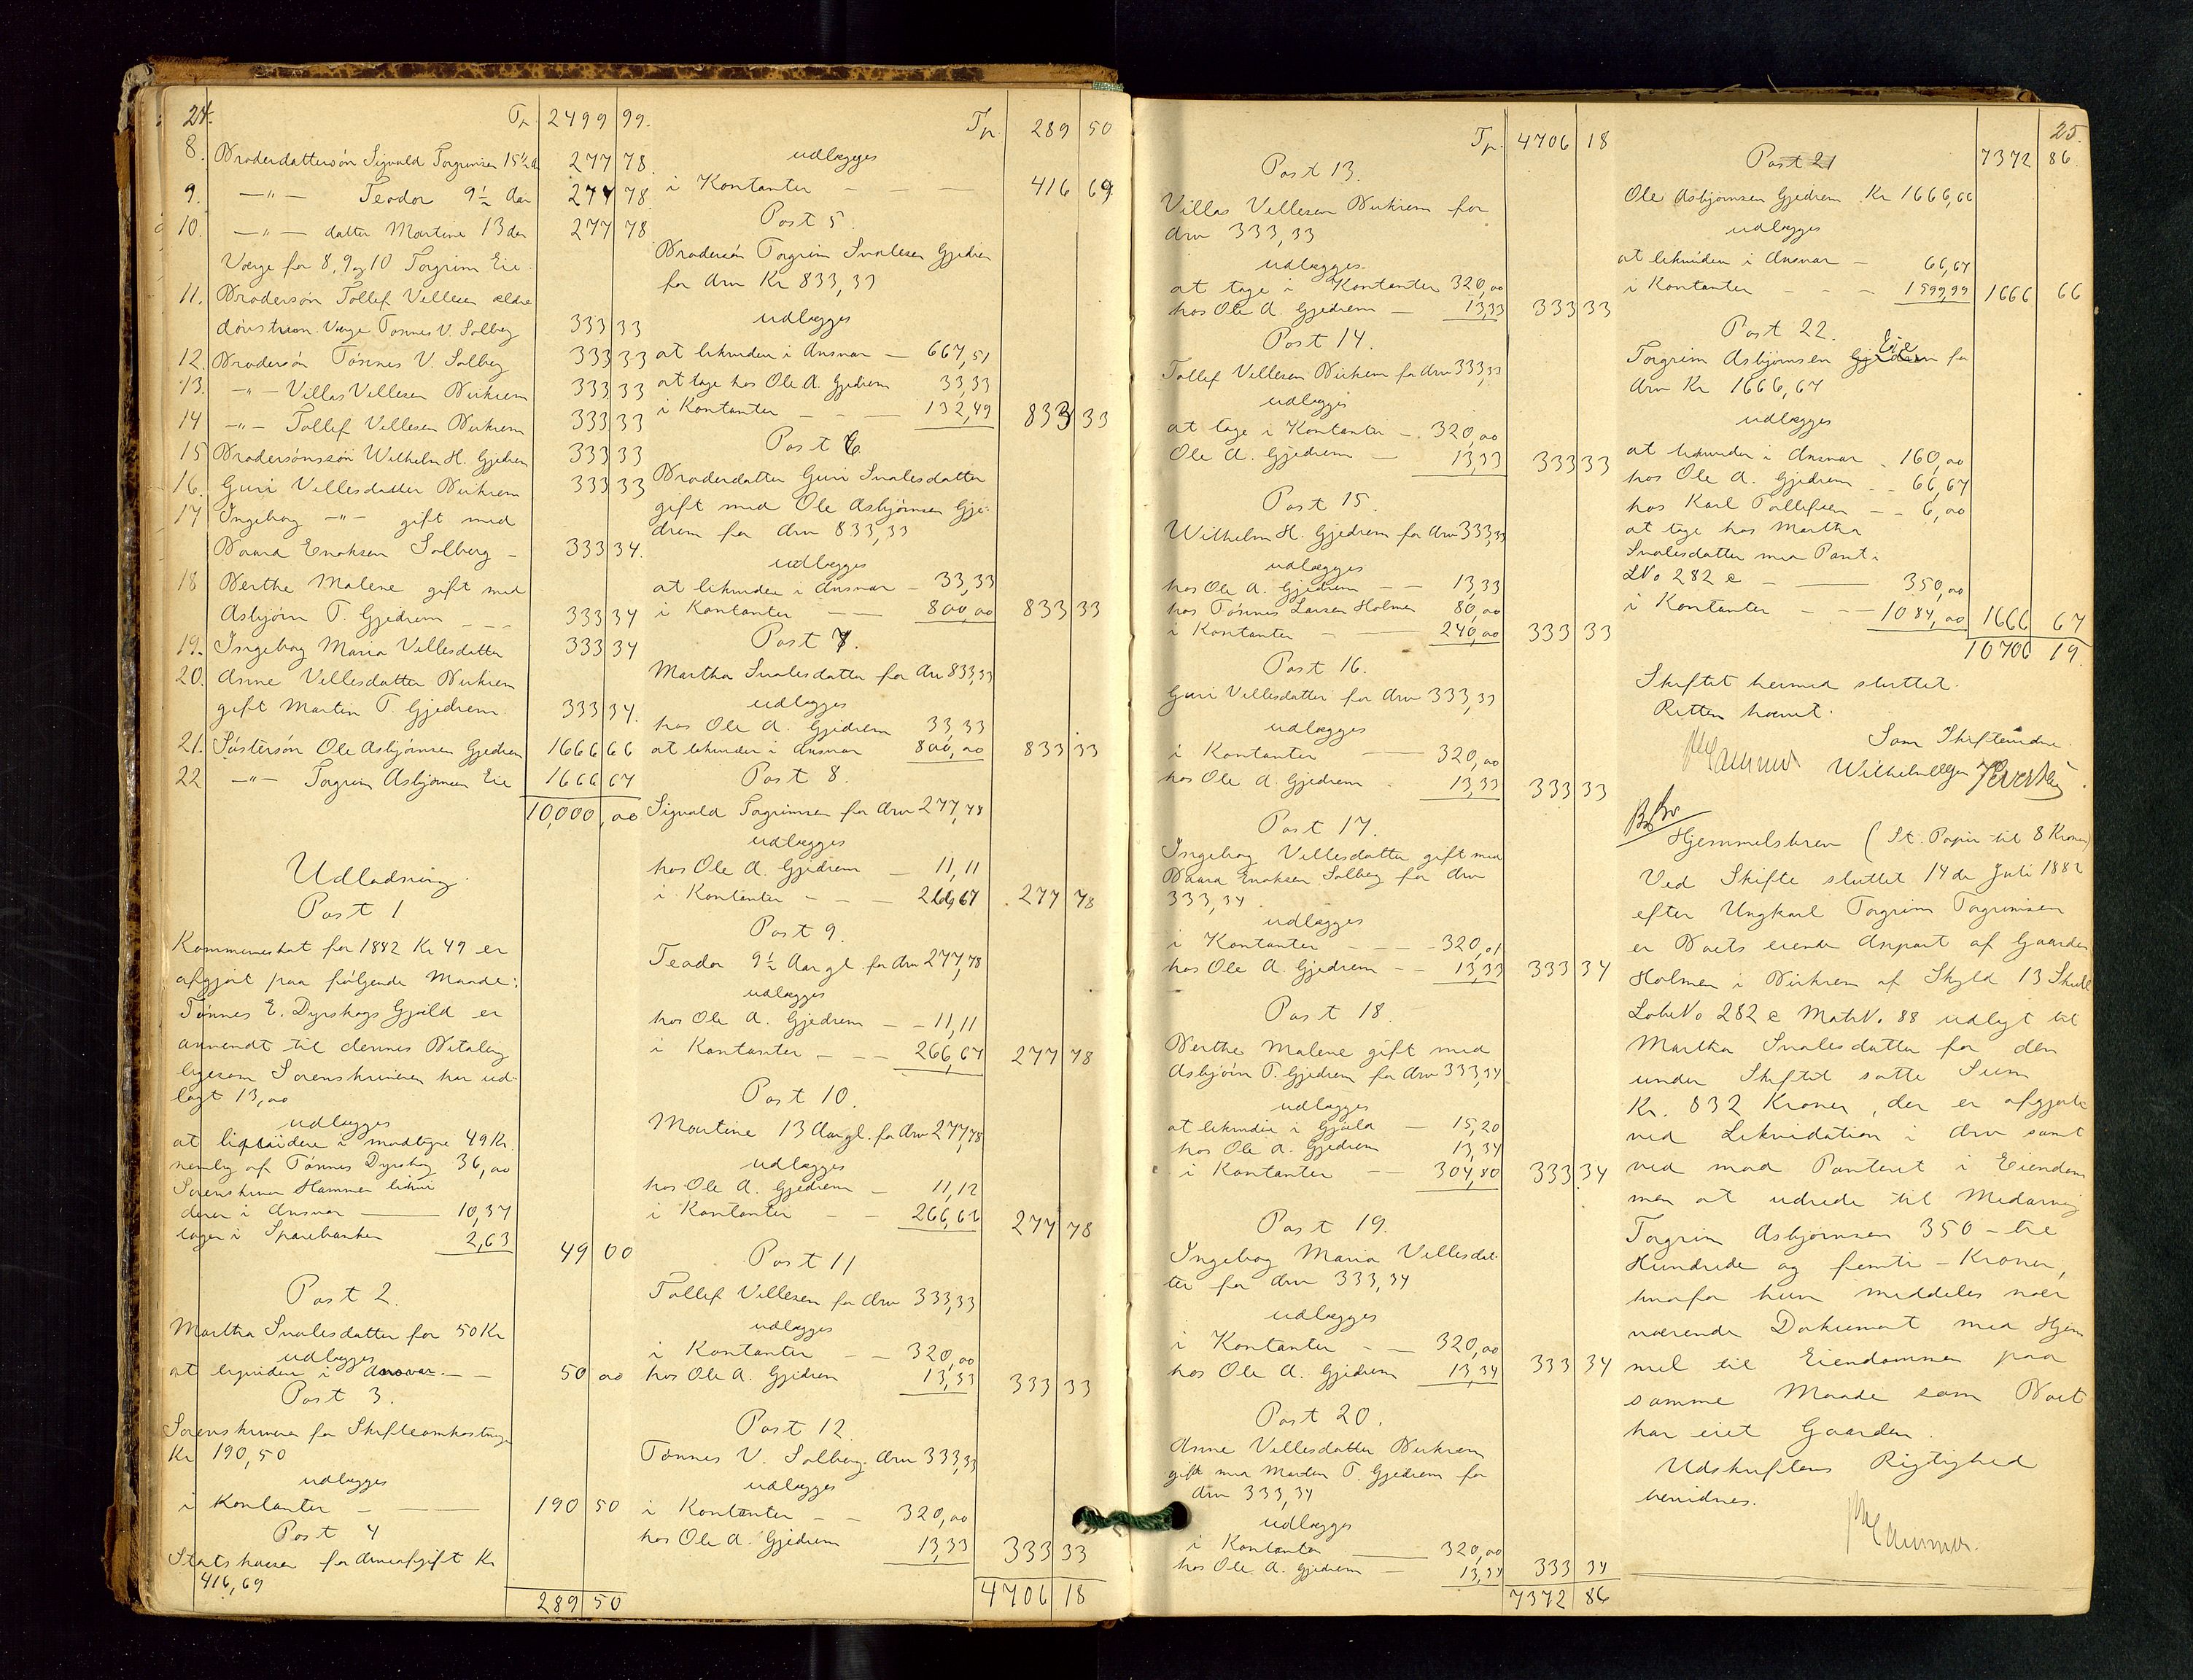 24.
Tr. 2499 99.
8. Broderdattersön Sigvald Torgrimsen 15½ A 277 78.
9. —"— Teodor 9½ Aar 277 78.
10. —"— datter Martine 13 Aar 277 78
Værge for 8, 9 og 10 Torgrim Eie
11. Brodersön Tollef Villesen ældre
Værge Tönnes V. Solberg 333 33
12. Brodersön Tönnes V. Solberg 333 33
13. —"— Villas Villesen Birkrem 333 33
14 —"— Tollef Villesen Birkrem 333 33
15 Brodersönssön Wilhelm H. Gjedrem 333 33
16. Guri Villesdatter Birkrem 333 33
17 Ingeborg —"— gift med
Baard Enoksen Solberg – 333 34.
18 Berthe Malene gift med
Asbjörn T. Gjedrem – – – 333 34
19. Ingeborg Maria Villesdatter 333 34
20. Anne Villesdatter Birkrem
gift Martin T. Gjedrem 333 34.
21. Söstersön Ole Asbjörnsen Gjedrem 1666 66
22 —"— Torgrim Asbjörnsen Eie 1666 67
10,000,00
Udlodning.
Post 1
Kommuneskat for 1882 Kr 49 er
afgjort paa fölgende Maade:
Tönnes E. Dyrskogs Gjæld er
anvendt til dennes Betaling
ligesom Sorenskriveren har ud-
lagt 13,00
udlægges
at liqvidere i modtagne 49 Kr
nemlig af Tönnes Dyrskog 36,00
Sorenskriver Hammer likvi
derer i Ansvar —— 10,37
tages i Sparebanken 2,63
49 00
Post 2.
Martha Svalesdatter for 50 Kr
udlægges
at liqvidere i Ansvar – – 50 00
Post 3.
Sorenskriveren for Skifteomkostninger
Kr 190,50
udlægges
i Kontanter – —— 190 50
Post 4
Statskassen for Arveafgift Kr
416,69
289 50
Tr. 289 50
udlægges
i Kontanter – – — 416 69
Post 5.
Brodersön Torgrim Svalesen Gjedrem
for Arv Kr 833,33
udlægges
at likvidere i Ansvar — 667,51
at tage hos Ole A. Gjedrem 33,33
i Kontanter – – — 132,49 833 33
Post 6
Broderdatter Guri Svalesdatter
gift med Ole Asbjörnsen Gje-
drem for Arv 833,33
udlægges
at likvidere i Ansvar – 33,33
i Kontanter – —— 800,00 833 33
Post 7.
Martha Svalesdatter for Arv 833,33
udlægges
hos Ole A. Gjedrem 33,33
at likvidere i Ansvar 800,00 833 33
Post 8.
Sigvald Torgrimsen for Arv 277,78
udlægges
hos Ole A. Gjedrem — 11,11
i Kontanter – – — 266,67 277 78
Post 9.
Teodor 9½ Aar gl. for Arv 277,78
udlægges
hos Ole A. Gjedrem – – 11,11
i Kontanter – – — 266,67 277 78
Post 10.
Martine 13 Aar gl. for Arv 277,78
udlægges
hos Ole A. Gjedrem – 11,12
i Kontanter – – 266,66 277 78
Post 11
Tollef Villesen for Arv 333,33
udlægges
i Kontanter – – 320,00
hos Ole A. Gjedrem 13,33 333 33
Post 12.
Tönnes V. Solberg Arv 333,33
udlægges
i Kontanter – – 320,00
hos Ole A. Gjedrem 13,33 333 33
4706 18
Tr. 4706 18
Post 13.
Villas Villesen Birkrem for
Arv 333,33
udlægges
at tage i Kontanter 320,00
hos Ole A. Gjedrem — 13,33 333 33
Post 14.
Tollef Villesen Birkrem for Arv 333,33
udlægges
at tage i Kontanter – 320,00
Ole A. Gjedrem — 13,33 333 33
Post 15.
Wilhelm H. Gjedrem for Arv 333,33
udlægges
hos Ole A. Gjedrem — — 13,33
hos Tönnes Larsen Holmen 80,00
i Kontanter – —— 240,00 333 33
Post 16.
Guri Villesdatter for Arv 333,33
udlægges
i Kontanter —— 320,00
hos Ole A. Gjedrem 13,33 333 33
Post 17.
Ingeborg Villesdatter gift med
Baard Enoksen Solberg for Arv
333,34
udlægges
i Kontanter – – – 320,01
hos Ole A. Gjedrem – – 13,33 333 34
Post 18.
Berthe Malene gift med
Asbjörn T. Gjedrem for Arv 333,34
udlægges
at likvidere i Gjæld — 15,20
hos Ole A. Gjedrem 13,34
i Kontanter —— 304,80 333 34
Post 19.
Ingeborg Maria Villesdat-
ter for Arv 333,34
udlægges
i Kontanter – – 320,00
hos Ole A. Gjedrem 13,34 333 34
Post 20.
Anne Villesdatter Birkrem
gift med Martin T. Gjedrem for
Arv 333,34
udlægges
i Kontanter —— 320,00
hos Ole A. Gjedrem – 13,34 333 34
7372 86
25.
7372 86.
Post 21
Ole Asbjörnsen Gjedrem Kr 1666,66
udlægges
at likvidere i Ansvar – 66,67
i Kontanter – – – 1599,99 1666 66
Post 22.
Torgrim Asbjörnsen Eie for
Arv Kr 1666,67
udlægges
at likvidere i Ansvar – 160,00
hos Ole A. Gjedrem – – 66,67
hos Karl Tollefsen – – 6,00
at tage hos Martha
Svalesdatter mod Pant i
LNo 282 c – —— 350,00
i Kontanter – – – 1084,00 1666 67
10706 19.
Skiftet hermed sluttet.
Retten hævet.
Som Skiftevidne
Hammer Wilhelm
Hjemmelsbrev (St. Papir til 8 Kroner)
Ved Skifte sluttet 14de Juli 1882
efter Ungkarl Torgrim Torgrimsen
er Boets eiende Anpart af Gaarden
Holmen i Birkrem af Skyld 13 Skill
LöbeNo 282 c MatrNo 88 udlagt til
Martha Svalesdatter for den
under Skiftet satte Sum
Kr. 832 Kroner, der er afgjort
ved Likvidation i Arv samt
ved mod Panteret i Eiendom
men at udrede til Medarving
Torgrim Asbjörnsen 350 – tre
Hundrede og femti – Kroner,
hvorfor hun meddeles nær
værende Dokument med Hjem
mel til Eiendommen paa
samme Maade som Boet
har eiet Gaarden.
Udskriftens Rigtighed
bevidnes.
Hammer.